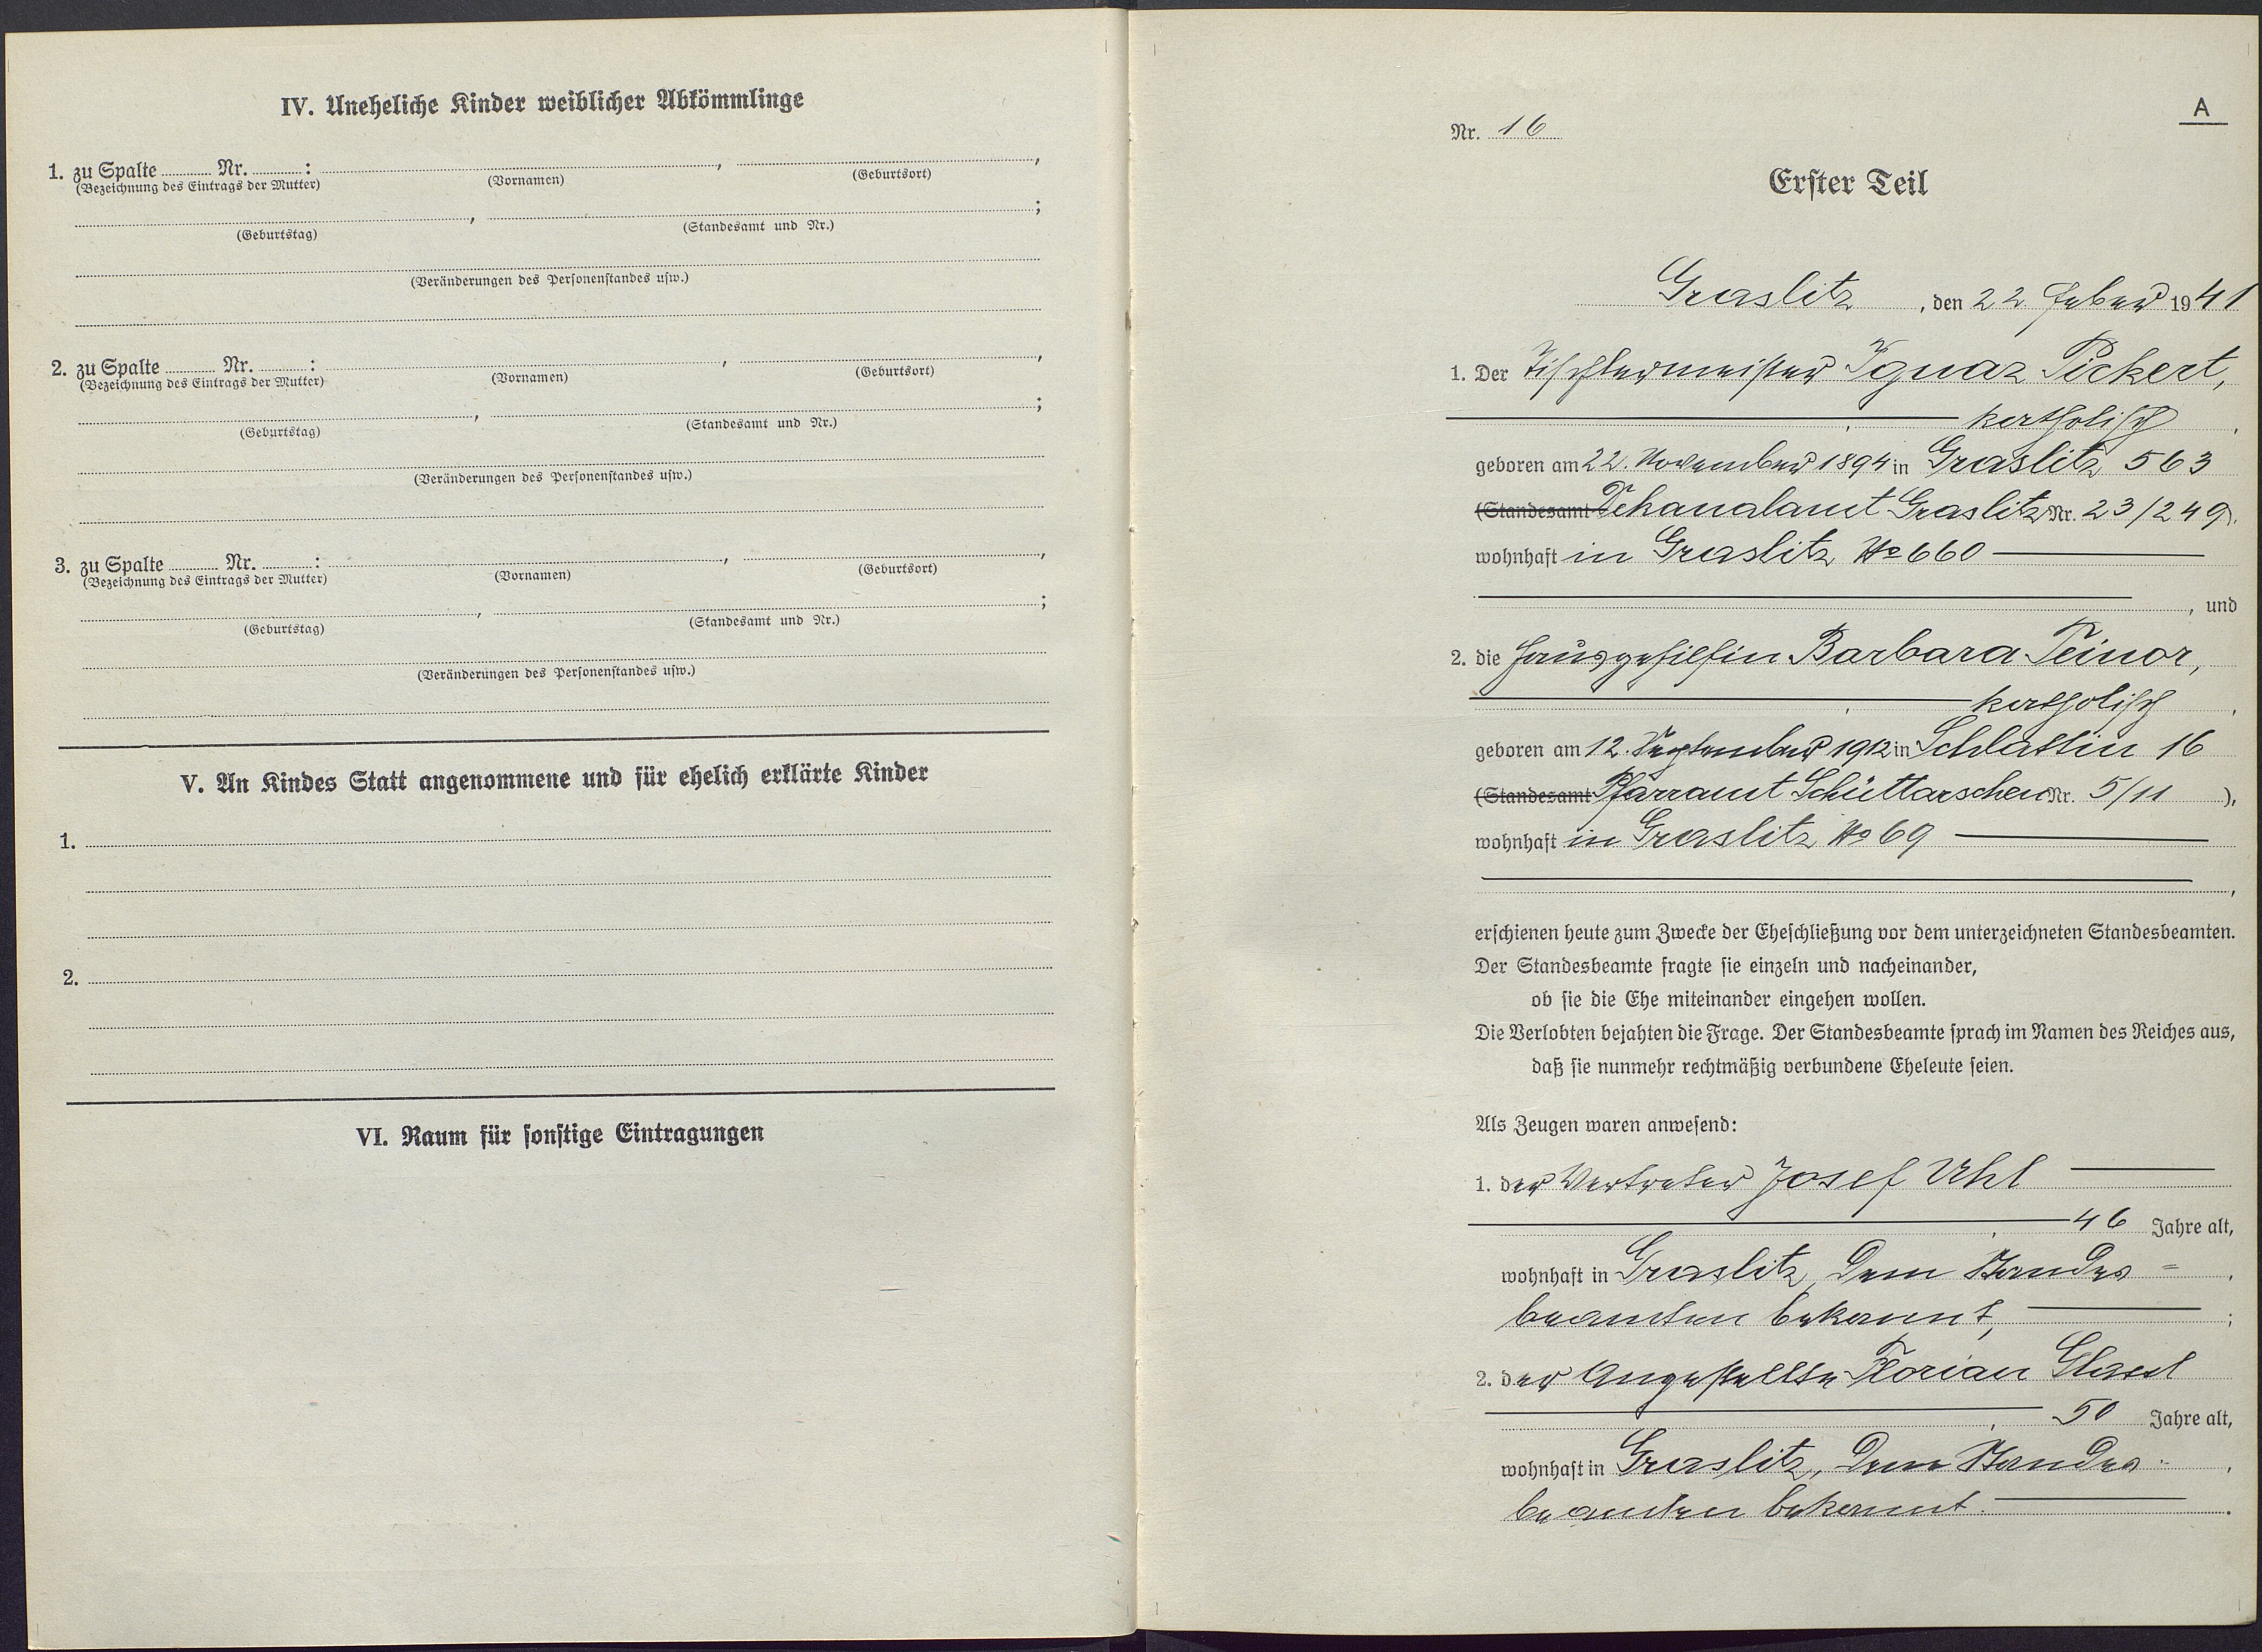 IV. Uneheliche Kinder weiblicher Abkömmlinge
1. zu Spalte ........ Nr. ........ :
(Bezeichnung des Eintrags der Mutter) (Vornamen) , (Geburtsort) ,
(Geburtstag) , (Standesamt und Nr.) ;
(Veränderungen des Personenstandes usw.)
2. zu Spalte ........ Nr. ........ :
(Bezeichnung des Eintrags der Mutter) (Vornamen) , (Geburtsort) ,
(Geburtstag) , (Standesamt und Nr.) ;
(Veränderungen des Personenstandes usw.)
3. zu Spalte ........ Nr. ........ :
(Bezeichnung des Eintrags der Mutter) (Vornamen) , (Geburtsort) ,
(Geburtstag) , (Standesamt und Nr.) ;
(Veränderungen des Personenstandes usw.)
V. An Kindes Statt angenommene und für ehelich erklärte Kinder
1.
2.
VI. Raum für sonstige Eintragungen
A
Nr. 16
Erster Teil
Graslitz , den 22. Feber 1941
1. Der Tischlermeister Ignaz Pickert,
katholisch ,
geboren am 22. November 1894 in Graslitz 563
(Standesamt Dekanalamt Graslitz Nr. 23/249),
wohnhaft in Graslitz No 660
, und
2. die Hausgehilfin Barbara Peinor,
katholisch ,
geboren am 12. September 1912 in Schlattin 16
(Standesamt Pfarramt Schüttarschen Nr. 5/11 ),
wohnhaft in Graslitz No 69
,
erschienen heute zum Zwecke der Eheschließung vor dem unterzeichneten Standesbeamten.
Der Standesbeamte fragte sie einzeln und nacheinander,
ob sie die Ehe miteinander eingehen wollen.
Die Verlobten bejahten die Frage. Der Standesbeamte sprach im Namen des Reiches aus,
daß sie nunmehr rechtmäßig verbundene Eheleute seien.
Als Zeugen waren anwesend:
1. der Vertreter Josef Uhl
46 Jahre alt,
wohnhaft in Graslitz, dem Standes= ,
beamten bekannt, ;
2. der Angestellte Florian
50 Jahre alt,
wohnhaft in Graslitz, dem Standes- ,
beamten bekannt.